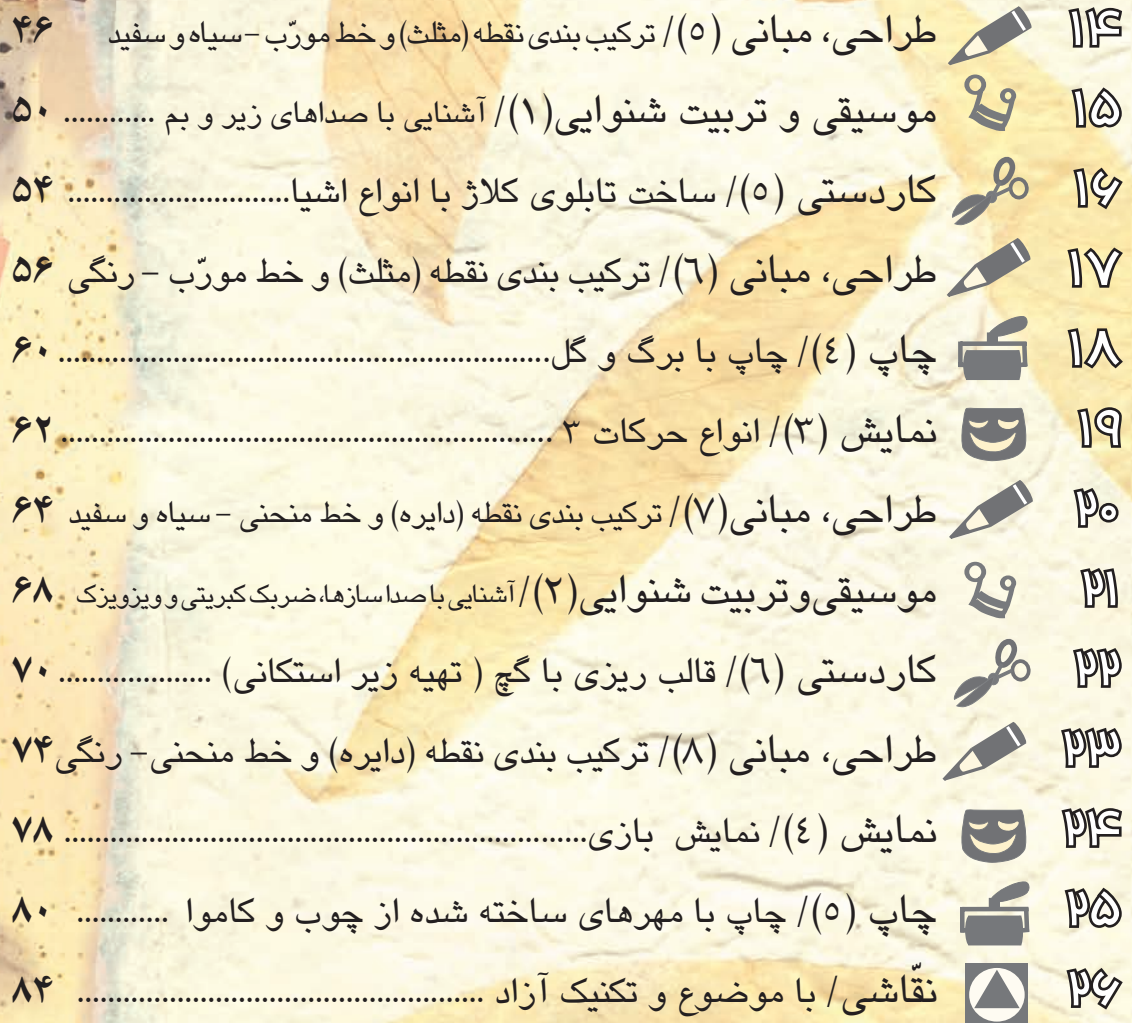 ۱۴ طراحی، مبانی (٥)/ ترکیب بندی نقطه (مثلث) و خط مورّب - سیاه و سفید ۴۶
۱۵ موسیقی و تربیت شنوایی(١)/ آشنایی با صداهای زیر و بم ............ ۵۰
۱۶ کاردستی (٥)/ ساخت تابلوی کلاژ با انواع اشیا............................. ۵۴
۱۷ طراحی، مبانی (٦)/ ترکیب بندی نقطه (مثلث) و خط مورّب - رنگی ۵۶
۱۸ چاپ (٤)/ چاپ با برگ و گل................................................................ ۶۰
۱۹ نمایش (٣)/ انواع حرکات ۳ ................................................................ ۶۲
۲۰ طراحی، مبانی(٧)/ ترکیب بندی نقطه (دایره) و خط منحنی - سیاه و سفید ۶۴
۲۱ موسیقی و تربیت شنوایی(٢)/ آشنایی با صدا سازها، ضربک کبریتی و ویزویزک ۶۸
۲۲ کاردستی (٦)/ قالب ریزی با گچ ( تهیه زیر استکانی) .................... ۷۰
۲۳ طراحی، مبانی (٨)/ ترکیب بندی نقطه (دایره) و خط منحنی- رنگی ۷۴
۲۴ نمایش (٤)/ نمایش بازی.................................................................... ۷۸
۲۵ چاپ (٥)/ چاپ با مهرهای ساخته شده از چوب و کاموا ............ ۸۰
۲۶ نقّاشی/ با موضوع و تکنیک آزاد ..................................................... ۸۴